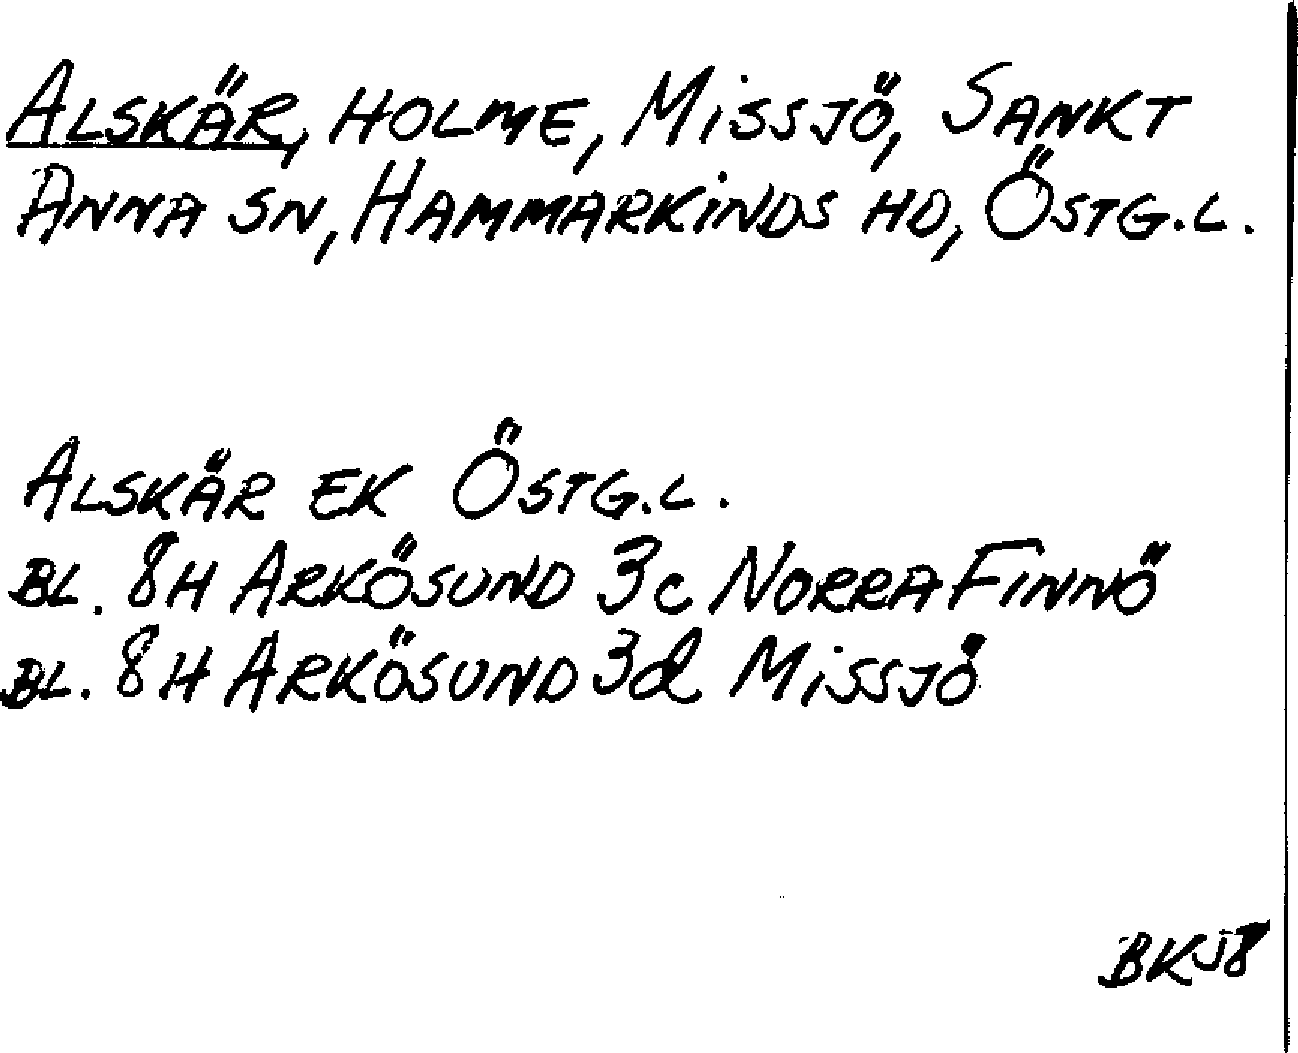 ALSKÄR, HOLME, MISSJÖ, SANKT
ANNA SN, HAMMARKINDS HD, ÖSTG.L.
ALSKÄR EK ÖSTG.L.
BL. 8H ARKÖSUND 3c NORRA FINNÖ
BL. 8H ARKÖSUND 3d MISSJÖ